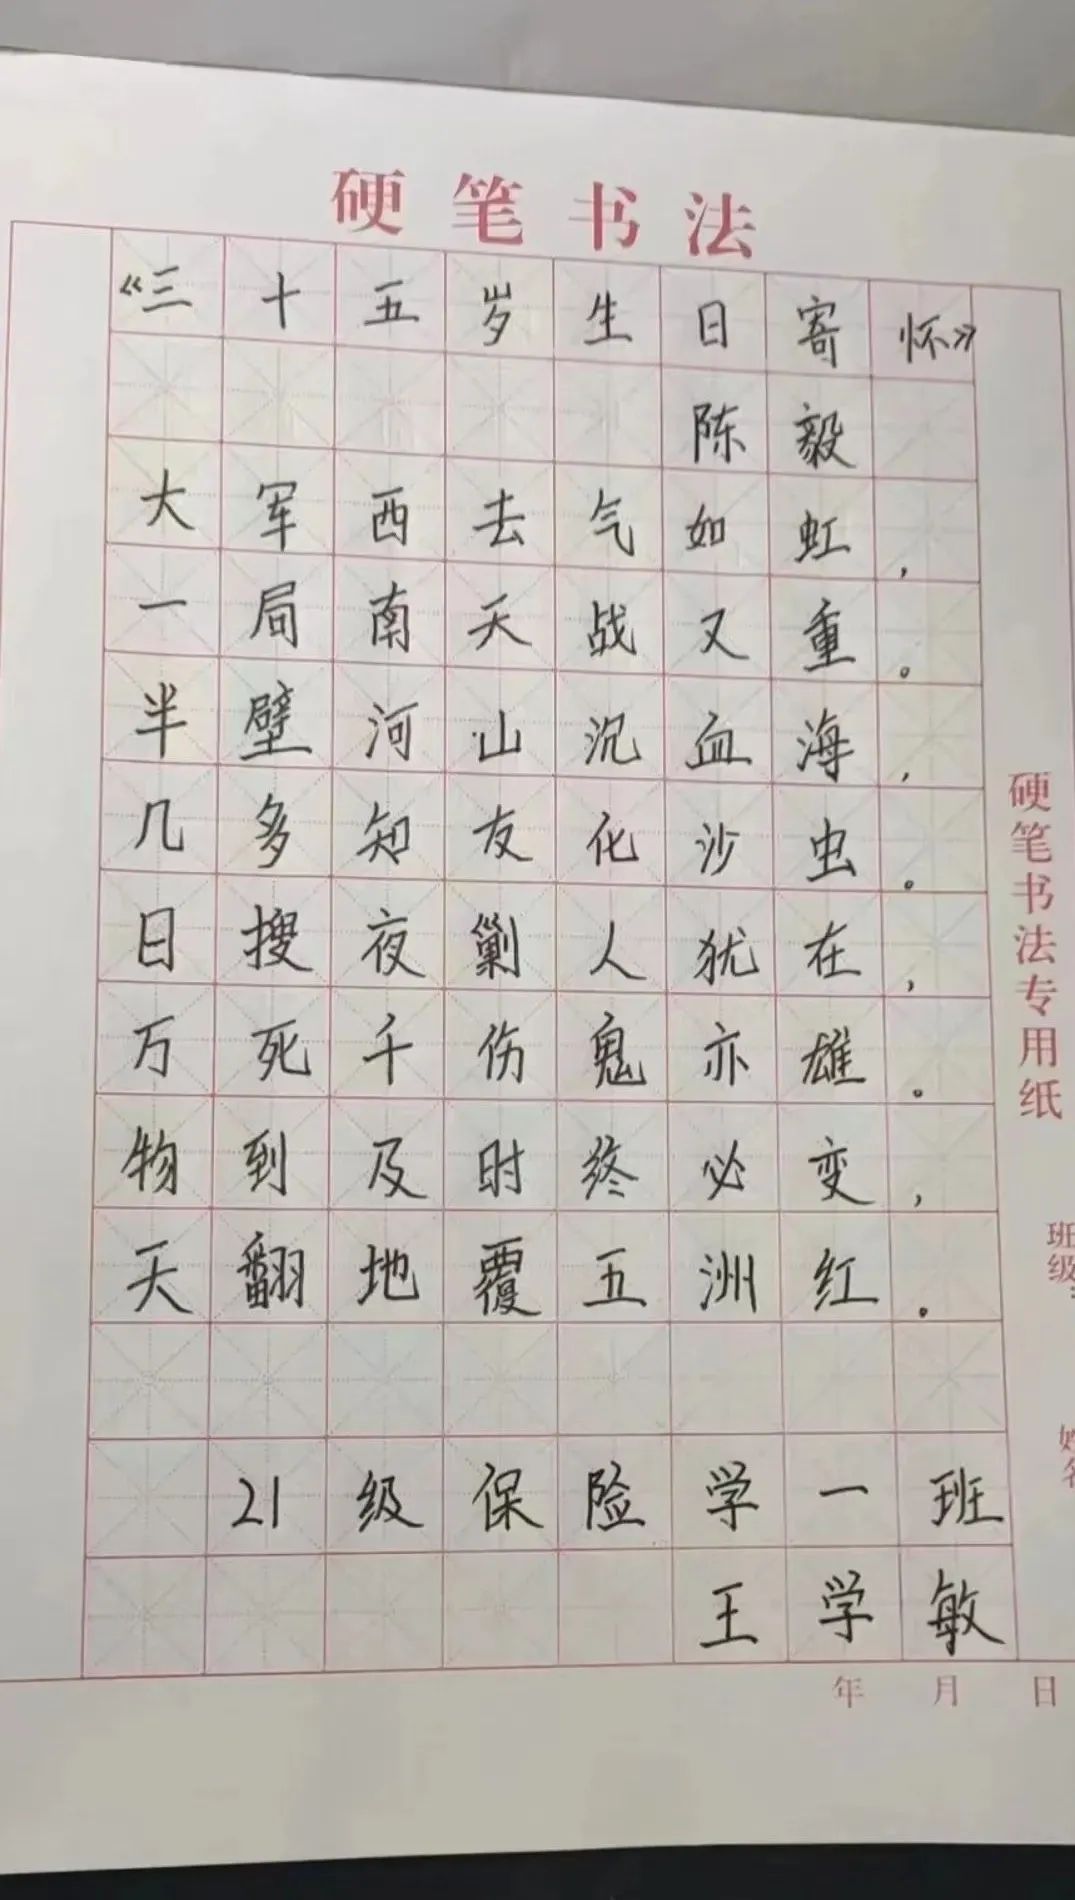 硬笔书法
《三十五岁生日寄怀》
陈毅
大军西去气如虹，
一局南天战又重。
半壁河山沉血海，
几多知友化沙虫。
日搜夜剿人犹在，
万死千伤鬼亦雄。
物到及时终必变，
天翻地覆五洲红。
21级保险学一班
王学敏
硬笔书法专用纸
班级:
姓名
年 月 日